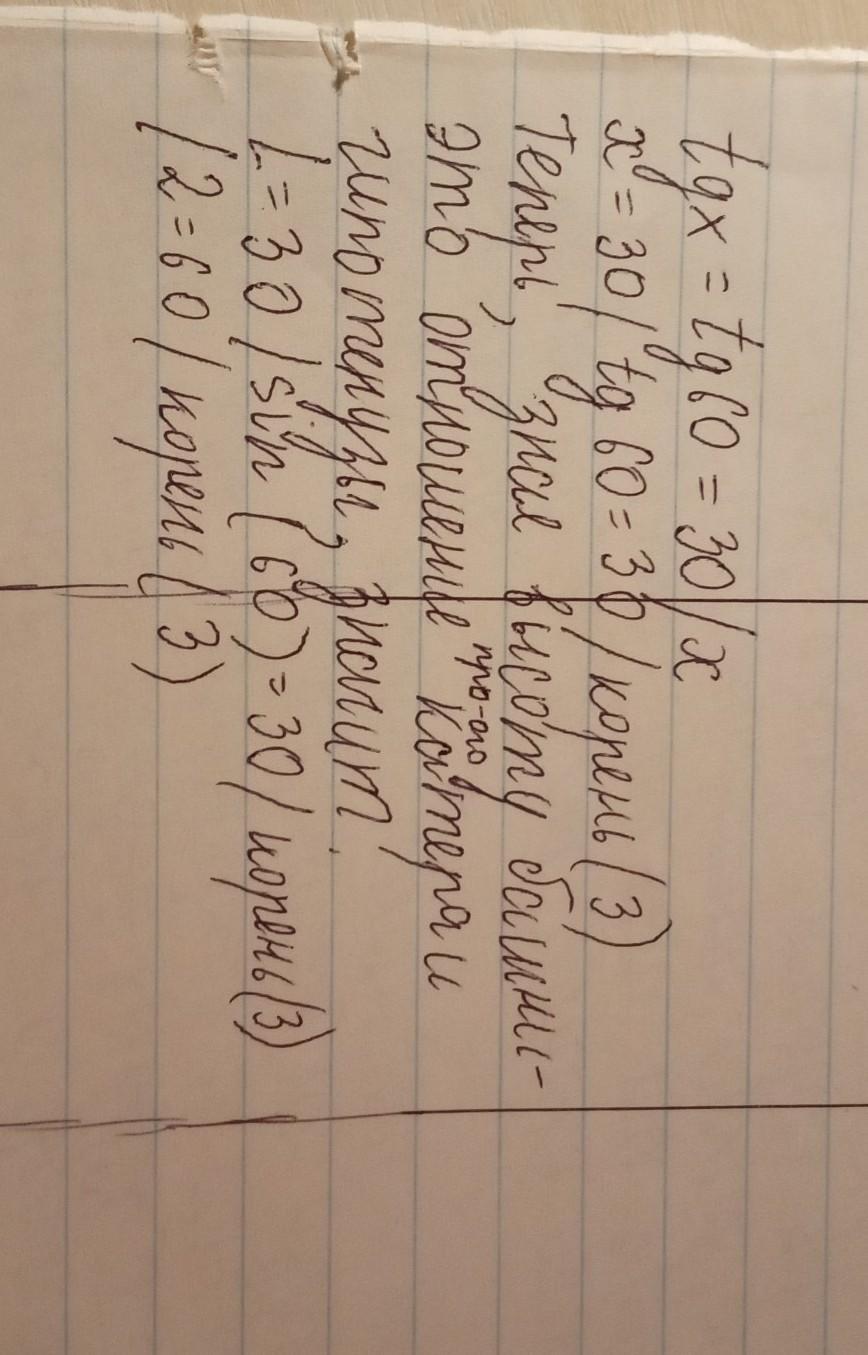 tgx = tg60 = 30/x
x = 30/tg60 = 30/корень(3)
Теперь, зная высоту башни -
это отношение про-ого катера и
гипотенузы, значит.
L = 30/sin(60) = 30/корень(3)
/2 = 60/корень(3)